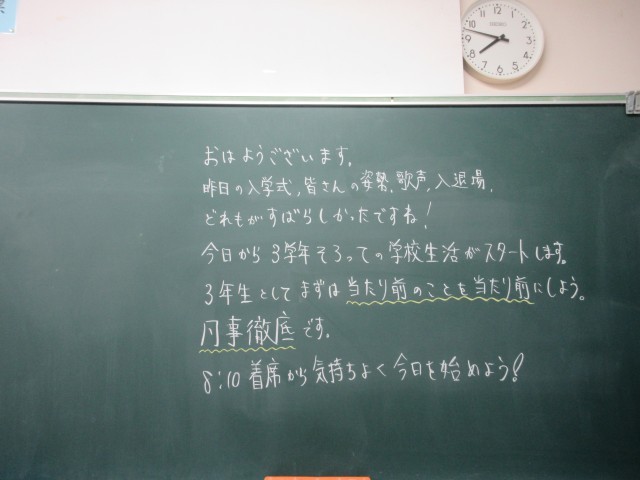 おはようございます。
昨日の入学式,皆さんの姿勢,歌声,入退場,
どれもがすばらしかったですね!
今日から3学年そろっての学校生活がスタートします。
3年生としてまずは当たり前のことを当たり前にしよう。
凡事徹底です。
8:10 着席から気持ちよく今日を始めよう!
12
1
2
3
4
5
6
7
8
9
10
11
SEIKO